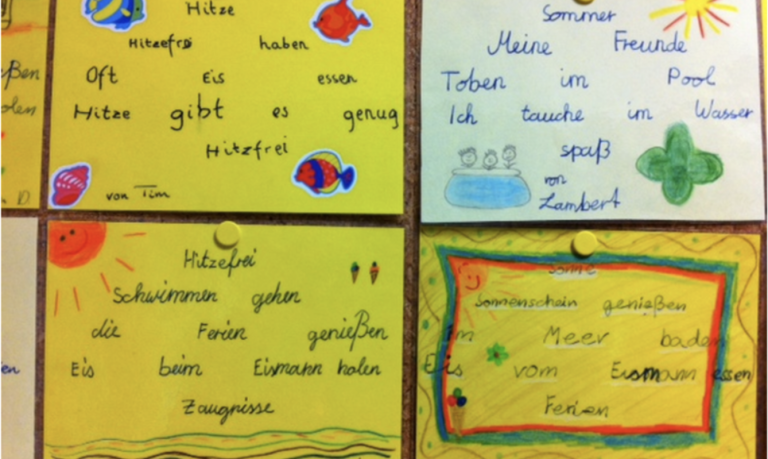 ßen
olen
D
Hitze
Hitzefrei haben
Oft Eis essen
Hitze gibt es genug
Hitzfrei
von Tim
Sommer
Meine Freunde
Toben im Pool
Ich tauche im Wasser
spaß
von
Lambert
en
Hitzefrei
Schwimmen gehen
die Ferien genießen
Eis beim Eismann holen
Zaugnisse
Sonne
Sonnenschein genießen
im Meer baden
Eis vom Eismann essen
Ferien